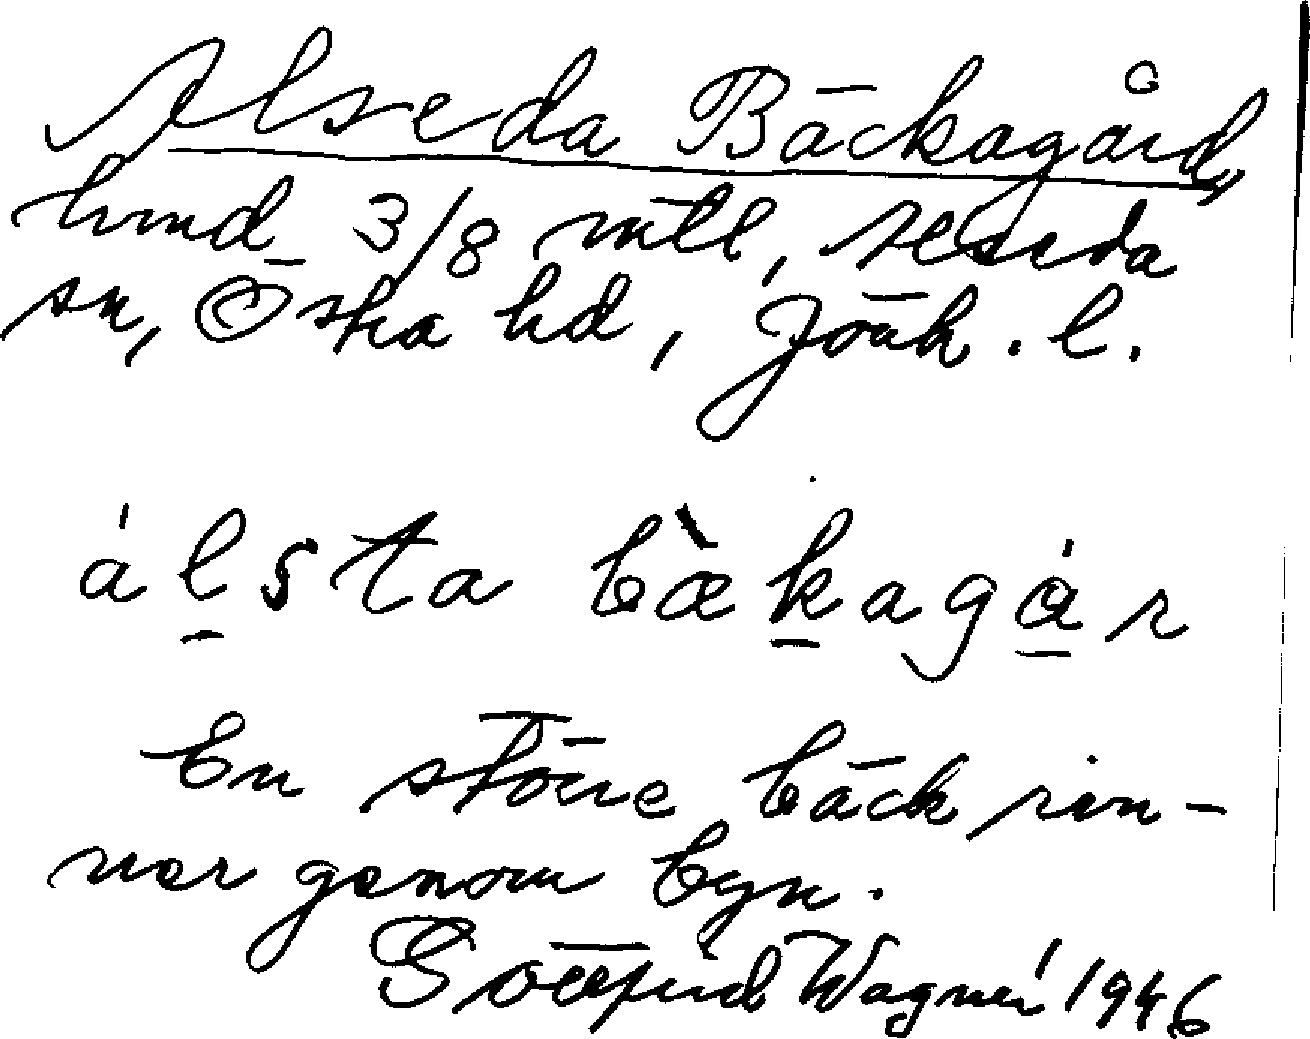 Alseda Bäckagård,
hmd 3/8 mtl, Alseda
sn, Östra hd, Jönk. l.
álsta bæ̀kagár
En större bäck rin-
ner genom byn.
Gottfrid Wagnér 1946